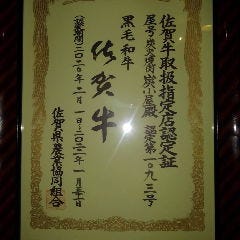 佐賀牛取扱指定店認定証
屋号 炭火焼肉 炭小屋殿 認定第一〇九三号
黒毛和牛
佐賀牛
二〇二〇年二月一日~二〇二二年一月三十一日
佐賀県農業協同組合